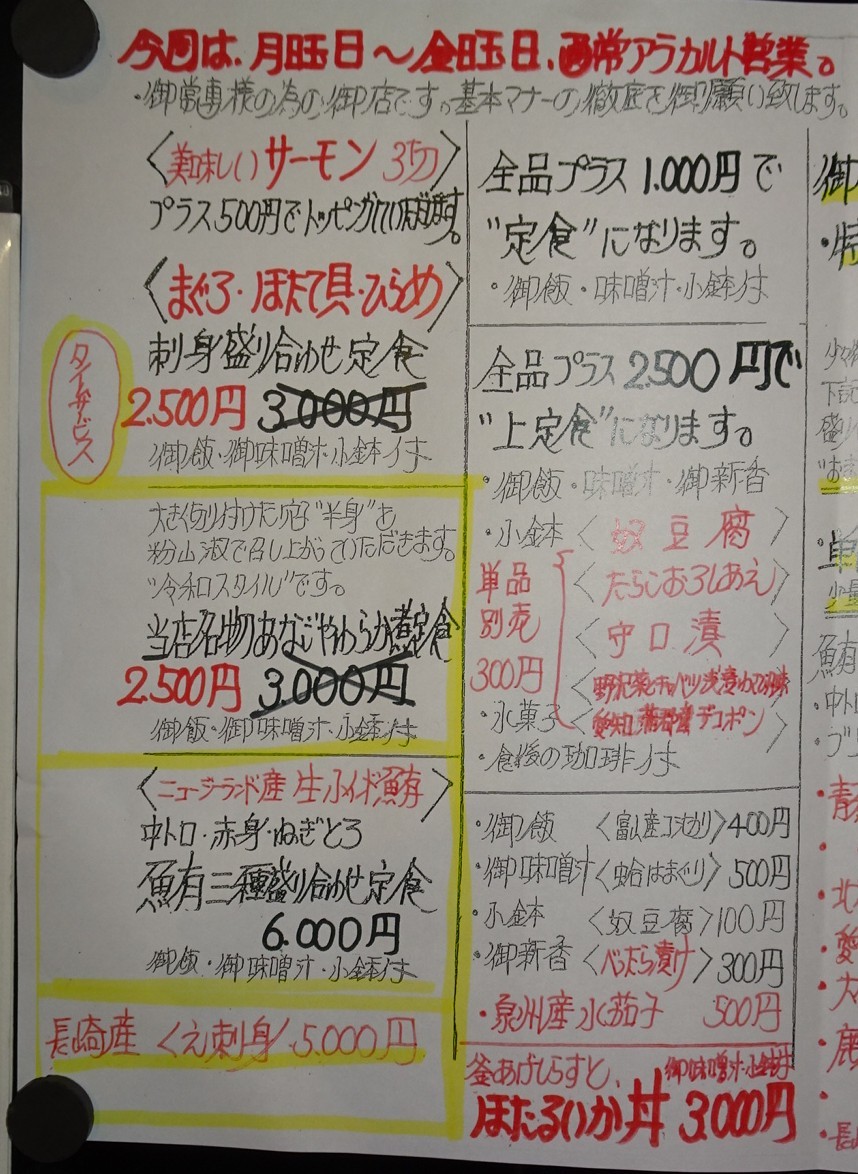 今回は、月曜日〜金曜日、通常アラカルト営業。
・御常連様の為の御店です。基本マナーの徹底を御願い致します。
〈美味しいサーモン3切〉
プラス500円でトッピングしていただけます。
〈まぐろ・ほたて貝・ひらめ〉
刺身盛り合わせ定食
2.500円 3.000円
御飯・御味噌汁・小鉢付
タイムサービス
大きく切り付けた穴子"半身"を
粉山椒で召し上がっていただきます。
"令和スタイル"です。
当店名物あなごやわらか煮定食
2.500円 3.000円
御飯・御味噌汁・小鉢付
〈ニュージーランド産 生ミナミ鮪〉
中トロ・赤身・ねぎとろ
鮪三種盛り合わせ定食
6.000円
御飯・御味噌汁・小鉢付
長崎産 くえ刺身 5.000円
全品プラス1.000円で
"定食"になります。
・御飯・味噌汁・小鉢付
全品プラス2.500円で
"上定食"になります。
・御飯・味噌汁・御新香
・小鉢〈奴豆腐〉
単品別売300円
〈たらこおろしあえ〉
〈守口漬〉
〈野沢菜とキャベツ浅漬
・氷菓子〈愛知蒲郡産デコポン〉
・食後の珈琲付
・御飯〈富山産コシヒカリ〉400円
・御味噌汁〈蛤はまぐり〉500円
・小鉢〈奴豆腐〉100円
・御新香〈べったら漬け〉300円
・泉州産水茄子 500円
釜あげしらすと、御味噌汁・小鉢付
ほたるいか丼 3.000円